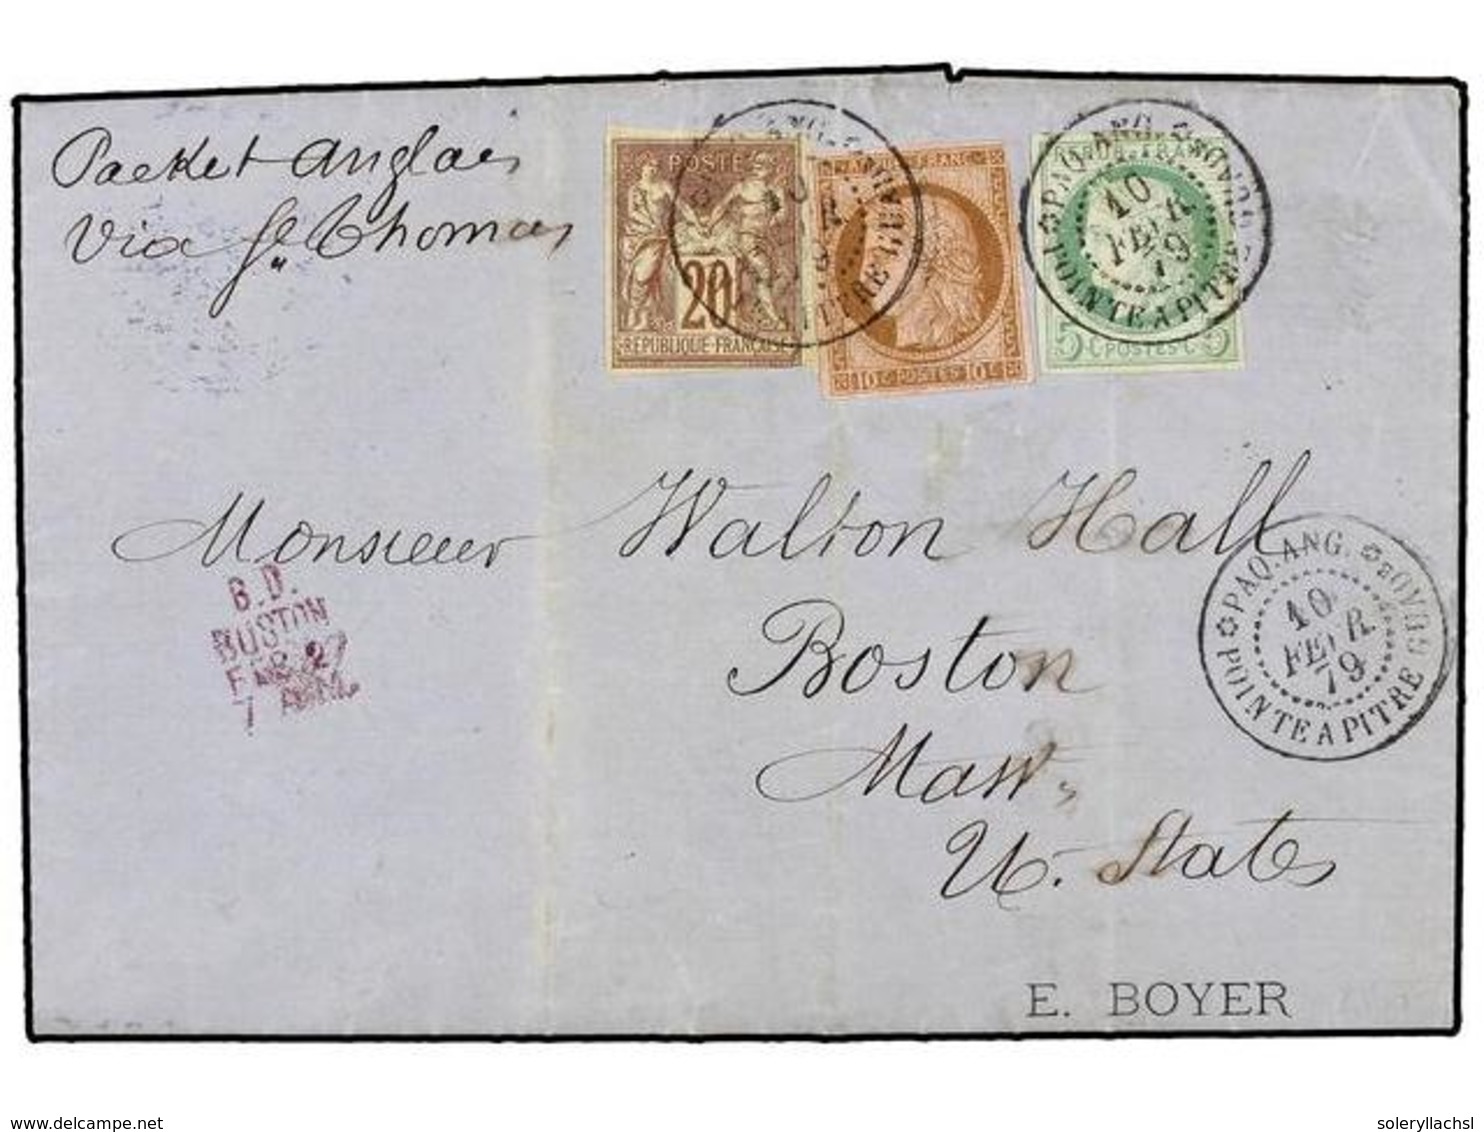 Packet anglais
Via St Thomas
POSTE
20
REPUBLIQUE FRANÇAISE
FRANC
10 C POSTES 10 C
5 C POSTES C 5
PAQ. ANG.
10
FEVR
79
POINTE A PITRE
Monsieur Walton Hall
Boston
Mass.
U. States
B.D.
BOSTON
27
7
PAQ. ANG. GUADOUPE
10
FEVR.
79
POINTE A PITRE
E. BOYER
delcampe.net
soleryllachsl